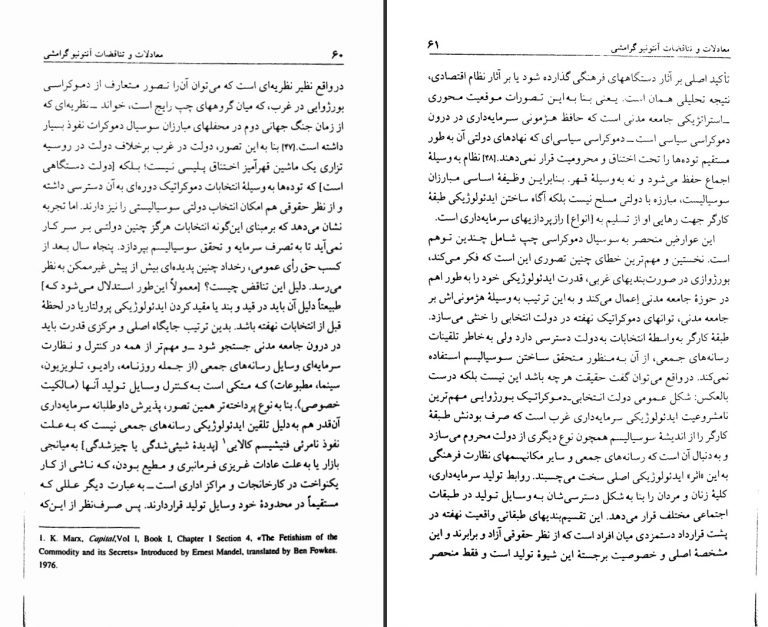 ۶۰ معادلات و تناقضات آنتونیو گرامشی
درواقع نظیر نظریه‌ای است که می‌توان آن‌را تصور متعارف از دموکراسی
بورژوایی در غرب، که میان گروههای چپ رایج است، خواند ــ نظریه‌ای که
از زمان جنگ جهانی دوم در محفلهای مبارزان سوسیال دموکرات نفوذ بسیار
داشته است.[۴۷] بنا به این تصور، دولت در غرب برخلاف دولت در روسیه
تزاری یک ماشین قهرآمیز اختناق پلیسی نیست؛ بلکه [دولت دستگاهی
است] که توده‌ها به‌وسیلهٔ انتخابات دموکراتیک دوره‌ای به‌آن دسترسی داشته
و از نظر حقوقی هم امکان انتخاب دولتی سوسیالیستی را نیز دارند. اما تجربه
نشان می‌دهد که برمبنای این‌گونه انتخابات هرگز چنین دولتی بر سر کار
نمی‌آید تا به‌تصرف سرمایه و تحقق سوسیالیسم بپردازد. پنجاه سال بعد از
کسب حق رأی عمومی، رخداد چنین پدیده‌ای بیش از پیش غیرممکن به‌نظر
می‌رسد. دلیل این تناقض چیست؟ [معمولاً این‌طور استدلال می‌شود که]
طبیعتاً دلیل آن باید در قید و بند یا مفید کردن ایدئولوژیکی پرولتاریا در لحظهٔ
قبل از انتخابات نهفته باشد. بدین ترتیب جایگاه اصلی و مرکزی قدرت باید
در درون جامعه مدنی جستجو شود ــ و مهم‌تر از همه در کنترل و نظارت
سرمایه‌ای وسایل رسانه‌های جمعی (از جمله روزنامه، رادیو، تلویزیون،
سینما، مطبوعات) که متکی است به‌کنترل وسایل تولید آنها (مالکیت
خصوصی). بنا به نوع پرداخته‌تر همین تصور، پذیرش داوطلبانه سرمایه‌داری
آن‌قدر هم به‌دلیل تلقین ایدئولوژیکی رسانه‌های جمعی نیست که به علت
نفوذ نامرئی فتیشیسم کالایی۱ [پدیدهٔ شیئی‌شدگی یا چیزشدگی] به‌میانجی
بازار یا به‌علت عادات غریزی فرمانبری و مطیع بودن، که ناشی از کار
یکنواخت در کارخانجات و مراکز اداری است ــ به‌عبارت دیگر عللی که
مستقیماً در محدودهٔ خود وسایل تولید قراردارند. پس صرف‌نظر از این‌که
1. K. Marx, Capital,Vol I, Book I, Chapter 1 Section 4, «The Fetishism of the
Commodity and its Secrets» Introduced by Ernest Mandel, translated by Ben Fowkes.
1976.
معادلات و تناقضات آنتونیو گرامشی ۶۱
تأکید اصلی بر آثار دستگاههای فرهنگی گذارده شود یا بر آثار نظام اقتصادی،
نتیجه تحلیلی همان است. یعنی بنا به‌این تصورات موقعیت محوری
ــ‌استراتژیکی جامعه مدنی است که حافظ هژمونی سرمایه‌داری در درون
دموکراسی سیاسی است ــ دموکراسی سیاسی‌ای که نهادهای دولتی آن به‌طور
مستقیم توده‌ها را تحت اختناق و محرومیت قرار نمی‌دهند.[۴۸] نظام به‌وسیلهٔ
اجماع حفظ می‌شود و نه به‌وسیلهٔ قهر. بنابراین وظیفهٔ اساسی مبارزان
سوسیالیست، مبارزه با دولتی مسلح نیست بلکه آگاه ساختن ایدئولوژیکی طبقهٔ
کارگر جهت رهایی او از تسلیم به [انواع] رازپردازیهای سرمایه‌داری است.
این عوارض منحصر به سوسیال دموکراسی چپ شامل چندین توهم
است. نخستین و مهم‌ترین خطای چنین تصوری این است که فکر می‌کند،
بورژوازی در صورت‌بندیهای غربی، قدرت ایدئولوژیکی خود را به‌طور اهم
در حوزهٔ جامعه مدنی إعمال می‌کند و به‌این ترتیب به‌وسیلهٔ هژمونی‌اش بر
جامعه مدنی، توانهای دموکراتیک نهفته در دولت انتخابی را خنثی می‌سازد.
طبقهٔ کارگر به‌واسطهٔ انتخابات به‌دولت دسترسی دارد ولی به‌خاطر تلقینات
رسانه‌های جمعی، از آن به‌منظور متحقق ساختن سوسیالیسم استفاده
نمی‌کند. درواقع می‌توان گفت حقیقت هرچه باشد این نیست بلکه درست
بالعکس: شکل عمومی دولت انتخابی‌ـ‌دموکراتیک بورژوایی مهم‌ترین
نامشروعیت ایدئولوژیکی سرمایه‌داری غرب است که صرف بودنش طبقهٔ
کارگر را از اندیشهٔ سوسیالیسم همچون نوع دیگری از دولت محروم می‌سازد
و به‌دنبال آن است که رسانه‌های جمعی و سایر مکانیسمهای نظارت فرهنگی
به‌این «اثر» ایدئولوژیکی اصلی سخت می‌چسبند. روابط تولید سرمایه‌داری،
کلیهٔ زنان و مردان را بنا به‌شکل دسترسی‌شان به‌وسایل تولید در طبقات
اجتماعی مختلف قرار می‌دهد. این تقسیم‌بندیهای طبقاتی واقعیت نهفته در
پشت قرارداد دستمزدی میان افراد است که از نظر حقوقی آزاد و برابرند و این
مشخصهٔ اصلی و خصوصیت برجستهٔ این شیوهٔ تولید است و فقط منحصر